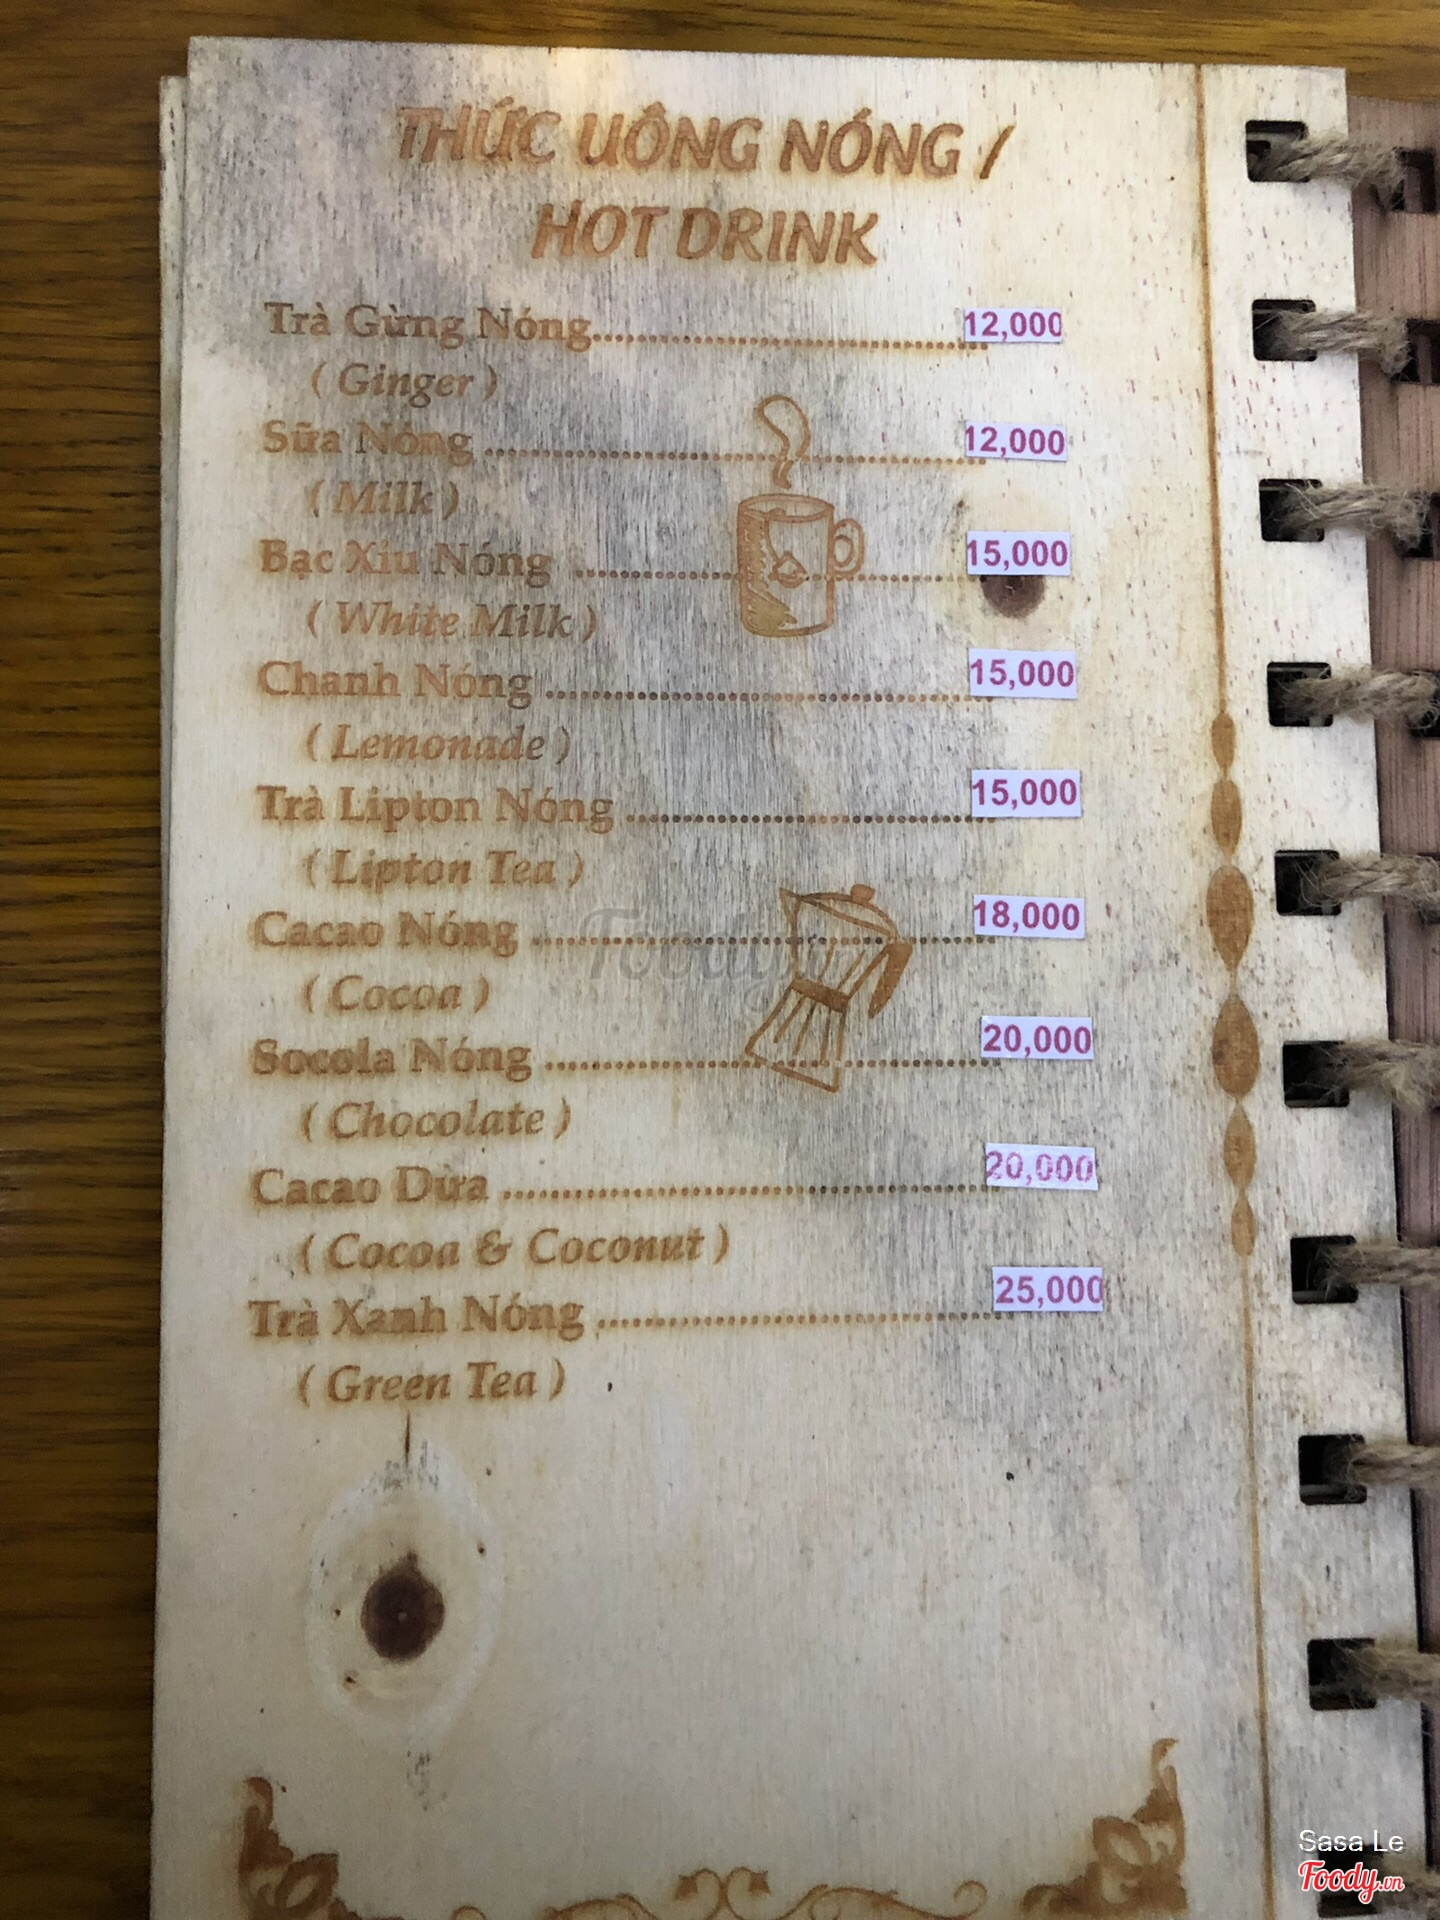 THỨC UÔNG NÓNG /
HOT DRINK
Trà Gừng Nóng.......... 12,000
( Ginger )
Sữa Nóng .......... 12,000
( Milk )
Bạc Xỉu Nóng .......... 15,000
( White Milk )
Chanh Nóng .......... 15,000
( Lemonade )
Trà Lipton Nóng .......... 15,000
( Lipton Tea )
Cacao Nóng .......... 18,000
( Cocoa )
Socola Nóng .......... 20,000
( Chocolate )
Cacao Dừa .......... 20,000
( Cocoa & Coconut )
Trà Xanh Nóng .......... 25,000
( Green Tea )
Foody.vn
Sasa Le
Foody.vn